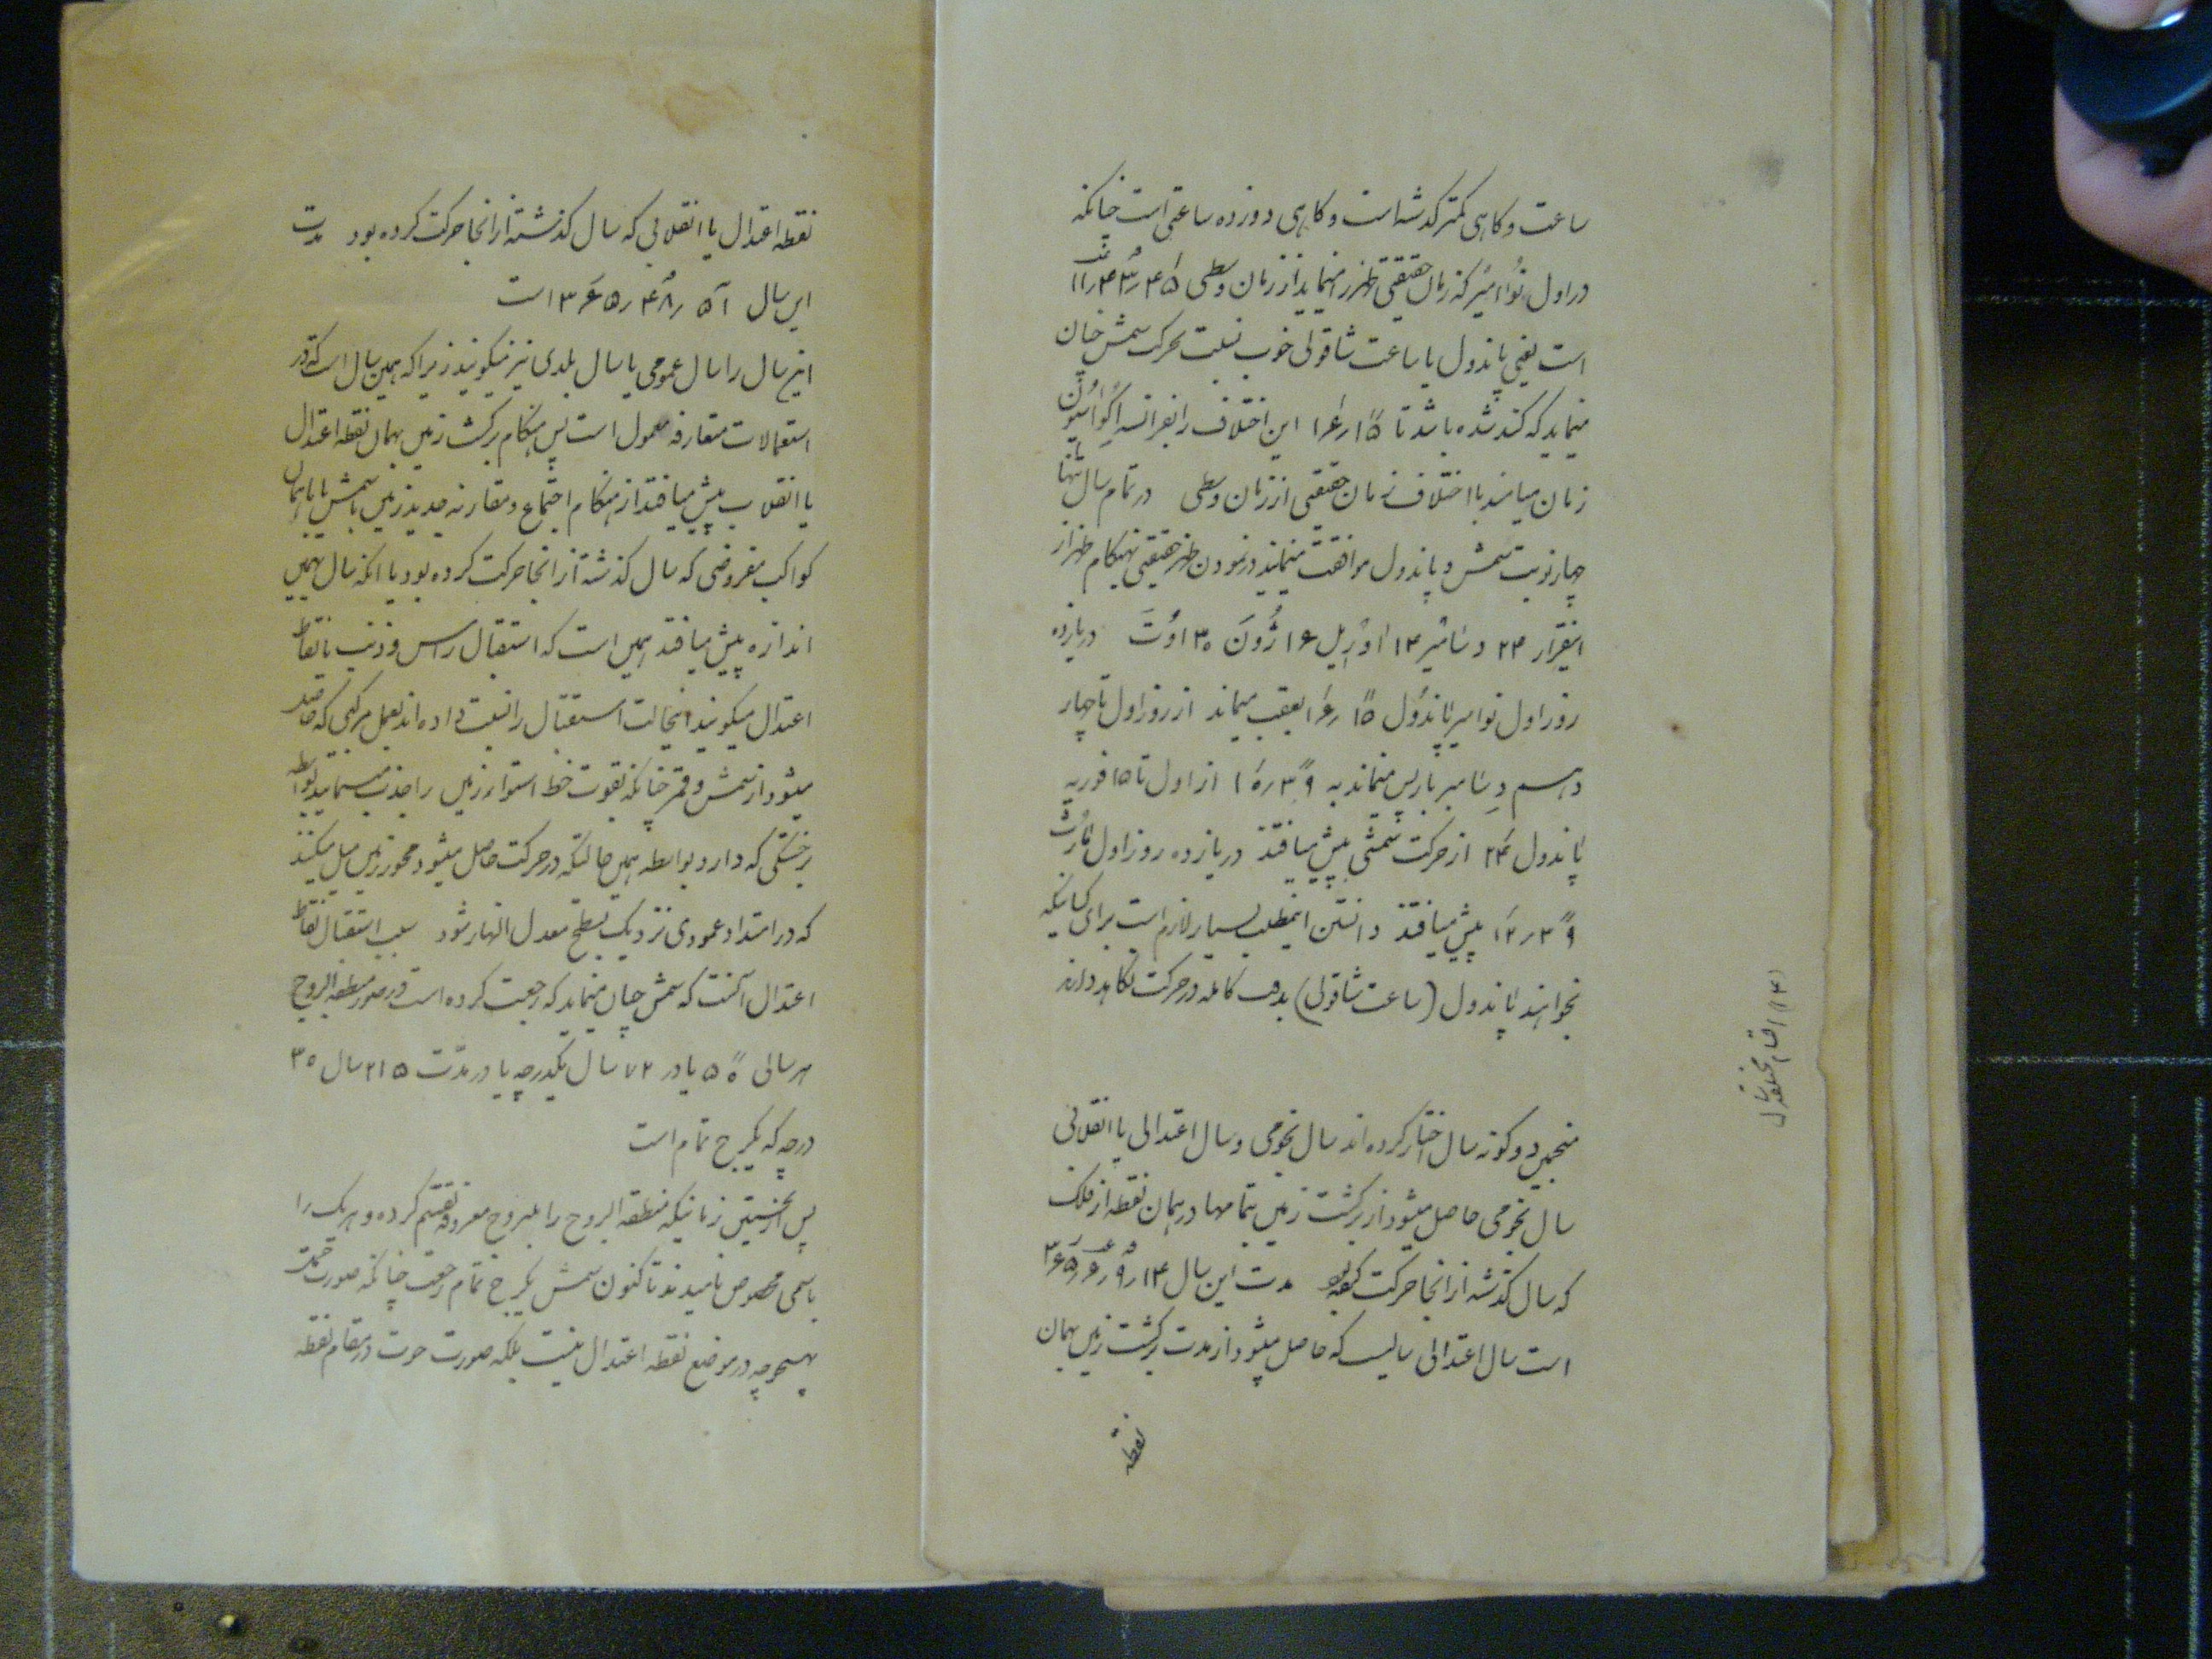 ساعت و کاهی کمتر گذشته است و کاهی دوزده ساعتی است چنانکه
در اول نوامبر که زمان حقیقی ظهر را مینماید از زمان وسطی ۴۵ ر ۴۳ ر ۱۱
است یعنی پاندول یا ساعت شاقولی خوب نسبت بحرکت شمس چنان
مینماید که کند شده باشد تا ۱۵ ر ۱۶ این اختلاف را بفرانسه اکواسیون
زمان مینامند یا اختلاف زمان حقیقی از زمان وسطی در تمام سال تنها
چهار نوبت شمس و پاندول موافقت مینمایند در نمودن ظهر حقیقی بهنکام ظهر از
اینقرار ۲۴ دسامبر ۱۴ اوریل ۱۶ ژون ۳۰ اوت در یازده
روز اول نوامبر پاندول ۱۵ ر ۱۶ بعقب میماند از روز اول تا چهار
دهم دسامبر باز پس میماند به ۳۹ ر ۱۵ از اول تا ۱۵ فوریه
پاندول ۲۴ از حرکت شمسی پیش میافتد در یازده روز اول مارث
۳۹ ر ۱۲ پیش میافتد دانستن اینمطلب بسیار لازم است برای کسانیکه
بخواهند پاندول (ساعت شاقولی) بدقت کامله در حرکت نکاهدارند
(۱۳) اقسام مختلفه سال
منجمین دو کونه سال اختیار کرده اند سال نجومی و سال اعتدالی یا انقلابی
سال نجومی حاصل میشود از برکشت زمین بتمامها در همان نقطه از فلک
که سال گذشته از انجا حرکت کرده بود مدت این سال ۱۴ ر ۹ ر ۶ ر ۳۶۵
است سال اعتدالی سالیست که حاصل میشود از مدت برکشت زمین بهمان
نقطه
نقطه اعتدال یا انقلابی که سال گذشته از انجا حرکت کرده بود مدت
این سال ۵۱ ر ۴۸ ر ۵ ر ۳۶۵ است
این سال را سال عمومی یا سال بلدی نیز میکویند زیرا که همین سال است که در
استعمالات متعارفه معمول است پس هنکام برکشت زمین بهمان نقطه اعتدال
یا انقلاب پیش میافتد از هنکام اجتماع و مقارنه جدید زمین با شمس یا با همان
کواکب مفروضی که سال گذشته از انجا حرکت کرده بود یا انکه سال بهمین
اندازه پیش میافتد همین است که استقبال راس و ذنب یا نقاط
اعتدال میکویند اینحالت استقبال را نسبت داده اند بعمل مرکبی که حاصل
میشود از شمس و قمر چنانکه بقوت خط استواء زمین را جذب مینمایند بواسطه
برجستکی که دارد بواسطه همین حالتیکه در حرکت حاصل میشود محور زمین میل میکند
که در امتداد عمودی نزدیک بسطح معدل النهار شود سبب استقبال نقاط
اعتدال آنست که شمس چنان مینماید که رجعت کرده است در صور منطقه البروج
هر سالی ۵۰ یا در ۷۲ سال یکدرجه یا در مدت ۲۱۵ سال ۳۰
درجه که یکبرج تمام است
پس از نخستین زمانیکه منطقه البروج را ببروج معروفه تقسیم کرده و هر یک را
باسمی مخصوص نامیدند تا کنون شمس یکبرج تمام رجعت چنانکه صورت حمل
بهیچوجه در موضع نقطه اعتدال نیست بلکه صورت حوت در مقام نقطه